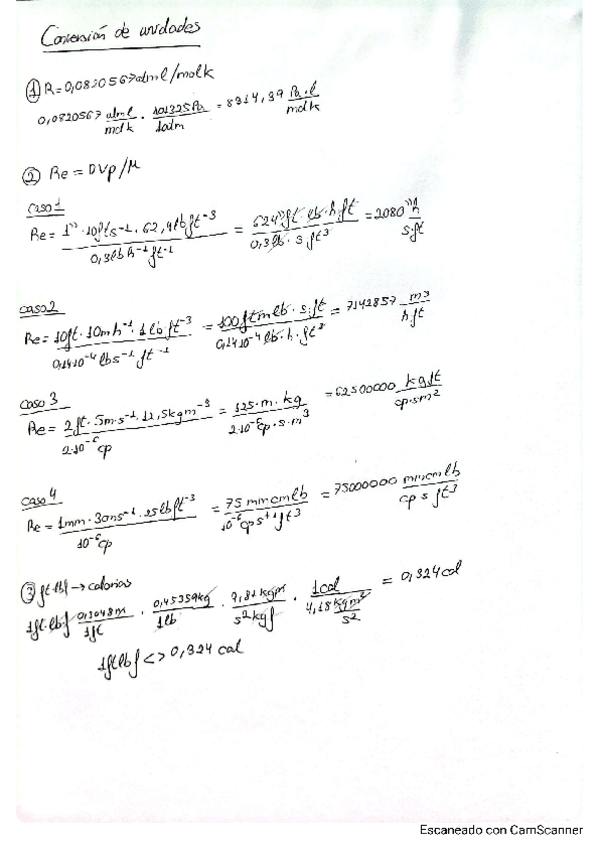 Conversión de unidades
① R = 0,0820567 atm l/mol k
0,0820567 atm l / mol k · 101325 Pa / 1 atm = 8314,39 Pa·l / mol k
② Re = DVρ/μ
Caso 1
Re = 1'' · 10 ft s⁻¹ · 62,4 lb ft⁻³ / 0,3 lb h⁻¹ ft⁻¹ = 624'' ft · lb · h · ft / 0,3 lb · s · ft³ = 2080'' h / s·ft
Caso 2
Re = 10 ft · 10 m h⁻¹ · 1 lb ft⁻³ / 0,14 10⁻⁴ lb s⁻¹ ft⁻¹ = 100 ft m lb · s · ft / 0,14 10⁻⁴ lb · h · ft³ = 7142857 m³ / h ft
Caso 3
Re = 2 ft · 5 m · s⁻¹ · 12,5 kg m⁻³ / 2·10⁻⁶ cp = 125 · m · kg / 2·10⁻⁶ cp · s · m³ = 62500000 kg ft / cp·s m²
Caso 4
Re = 1 mm · 3 cm s⁻¹ · 25 lb ft⁻³ / 10⁻⁶ cp = 75 mm cm lb / 10⁻⁶ cp s⁺¹ ft³ = 75000000 mm cm lb / cp s ft³
③ ft·lbf → calorías
1 ft·lbf · 0,3048 m / 1 ft · 0,45359 kg / 1 lb · 9,81 kg m / s² kgf · 1 cal / 4,18 kg m² / s² = 0,324 cal
1 ft lbf <> 0,324 cal
Escaneado con CamScanner